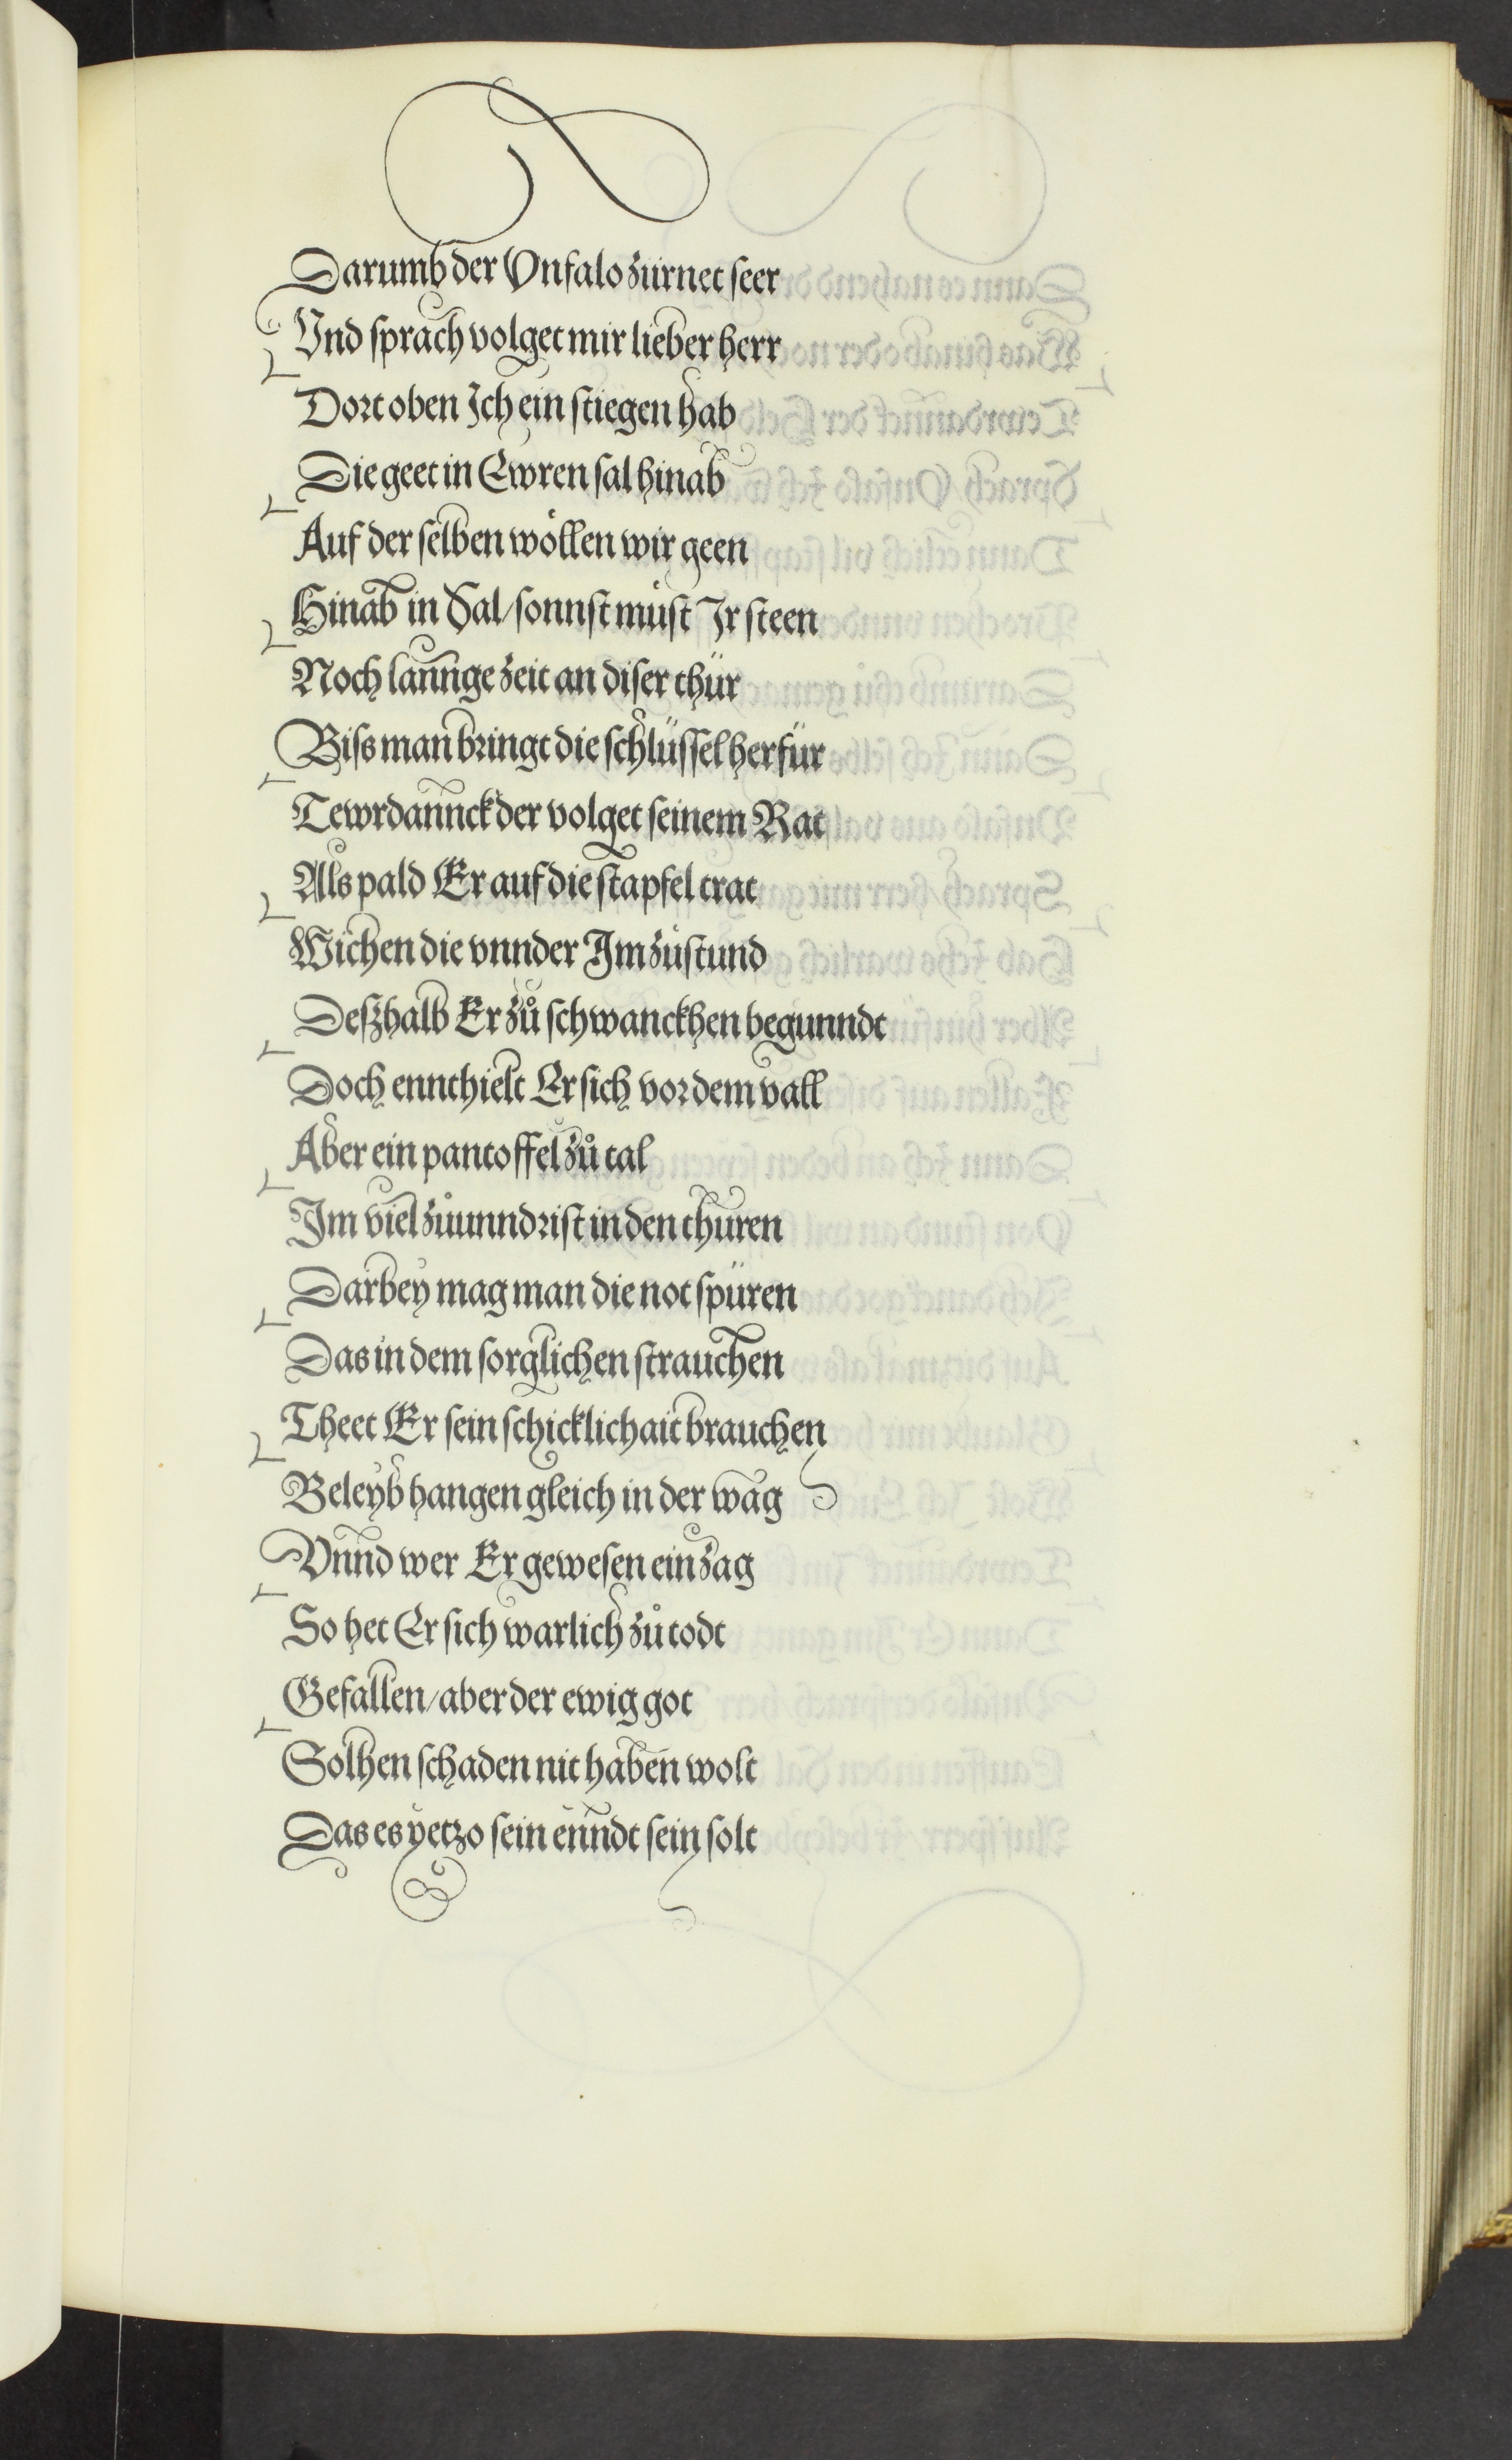 Darumb der Vnfalo zürnet seer
Vnd sprach volget mir lieber herr
Dort oben Ich ein stiegen hab
Die geet in Ewren sal hinab
Auf der selben wöllen wir geen
Hinab in Sal/ sonnst müst Ir steen
Noch lannge zeit an diser thür
Biss man bringt die schlüssel herfür
Tewrdannck der volget seinem Rat
Als pald Er auf die stapfel trat
Wichen die vnnder Im zůstund
Deßhalb Er zů schwanckhen begunndt
Doch ennthielt Er sich vor dem vall
Aber ein pantoffel zů tal
Im viel zůunndrist in den thuren
Darbey mag man die not spüren
Das in dem sorglichen strauchen
Theet Er sein schicklichait brauchen
Beleyb hangen gleich in der wag
Vnnd wer Er gewesen ein zag
So het Er sich warlich zů todt
Gefallen/ aber der ewig got
Solhen schaden nit haben wolt
Das es yetzo sein enndt sein solt